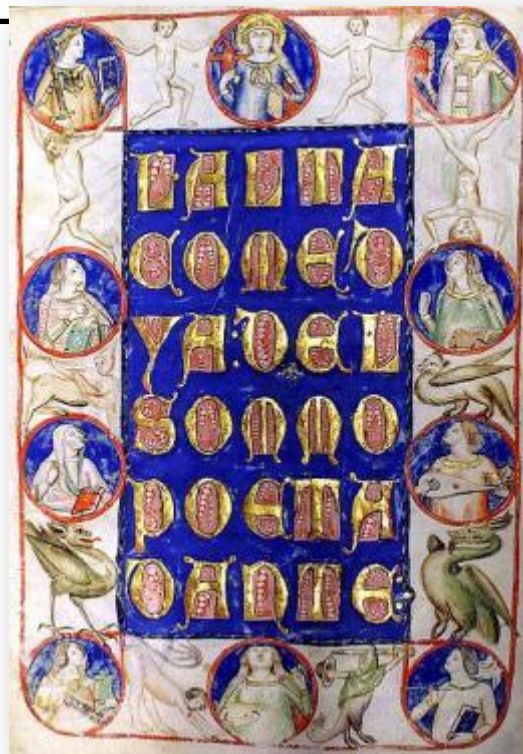 LALTA
COMED
YA:DEL
SOMMO
POETA
DANTE